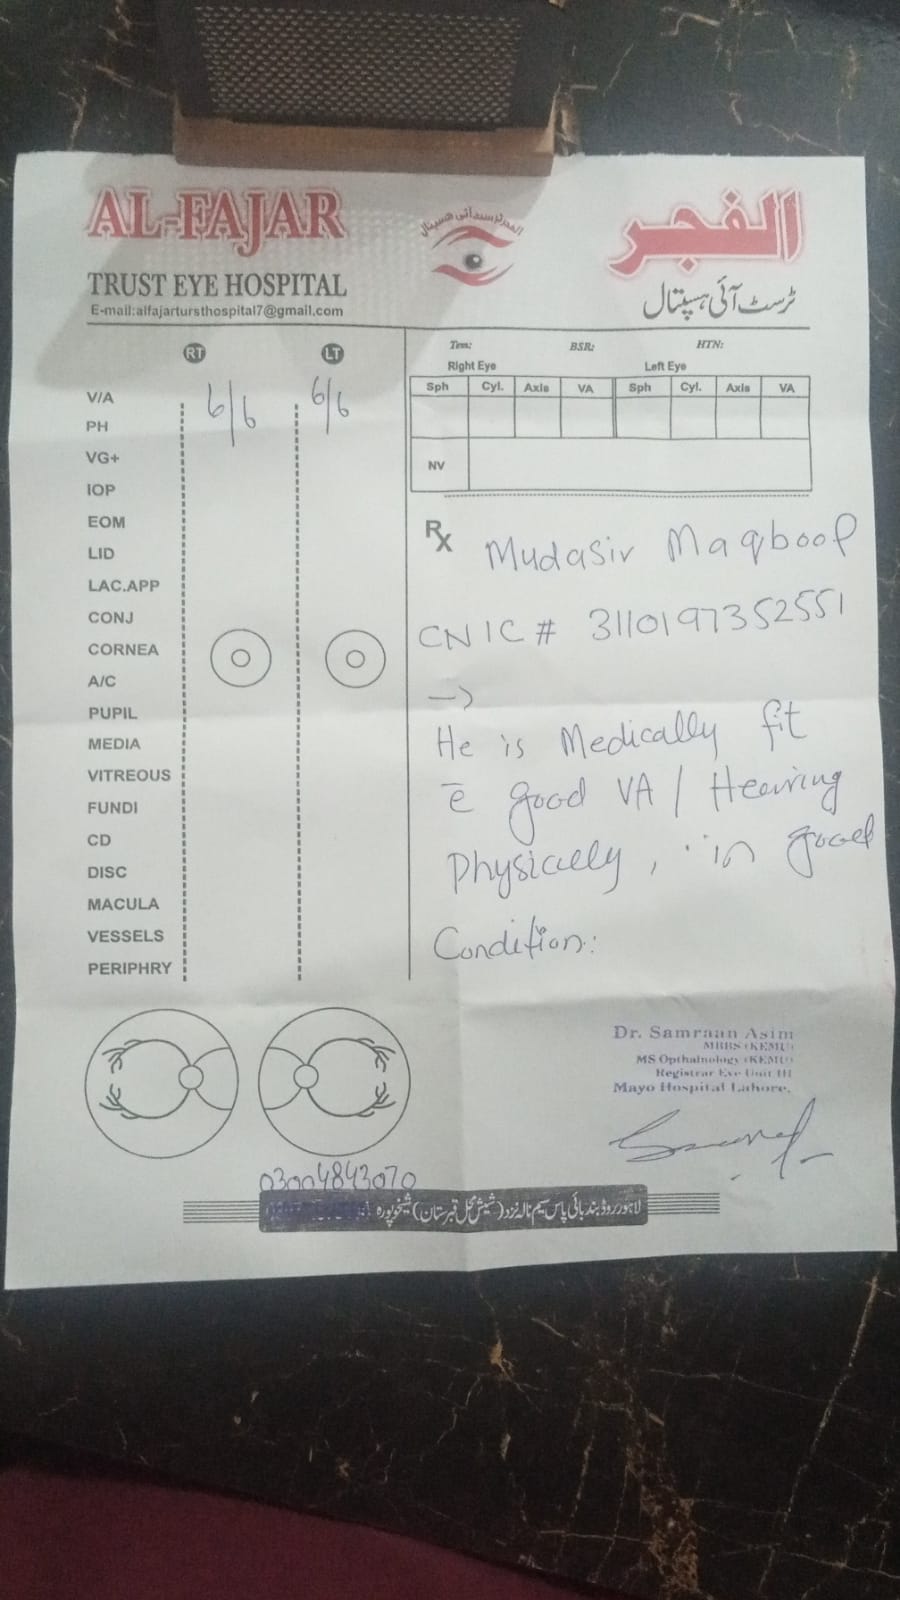 AL-FAJAR
TRUST EYE HOSPITAL
E-mail:alfajartursthospital7@gmail.com
الفجر ٹرسٹ آئی ہسپتال
الفجر
ٹرسٹ آئی ہسپتال
RT LT
V/A 6/6 6/6
PH
VG+
IOP
EOM
LID
LAC.APP
CONJ
CORNEA
A/C
PUPIL
MEDIA
VITREOUS
FUNDI
CD
DISC
MACULA
VESSELS
PERIPHRY
Tem: BSR: HTN:
Right Eye Left Eye
Sph Cyl. Axis VA Sph Cyl. Axis VA
NV
Rx Mudasir Maqbool
CNIC # 3110197352551
→
He is Medically fit
c̄ good VA / Hearing
Physically, in good
Condition.
Dr. Samraan Asim
MBBS (KEMU)
MS Opthalnology (KEMU)
Registrar Eye Unit III
Mayo Hospital Lahore.
03004843070
لاہور روڈ بند بائی پاس سیم نالہ نزد (شیش محل قبرستان) شیخوپورہ